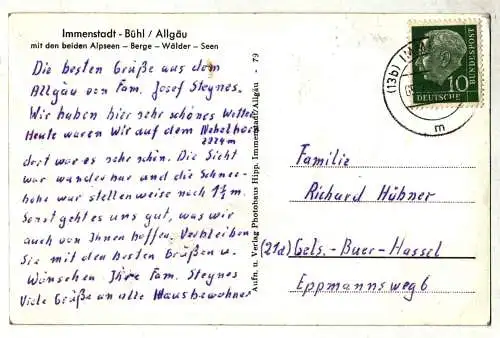 Immenstadt - Bühl / Allgäu
mit den beiden Alpseen — Berge — Wälder — Seen
Die besten Grüße aus dem
Allgäu von Fam. Josef Steynes.
Wir haben hier sehr schönes Wetter
Heute waren Wir auf dem Nebelhorn
2224m
dort war es sehr schön. Die Sicht
war wunderbar und die Schnee-
höhe war stellenweise noch 1½ m.
Sonst geht es uns gut, was wir
auch von Ihnen hoffen. Verbleiben
Sie mit den besten Grüßen u.
Wünschen Ihre Fam. Steynes
Viele Grüße an alle Hausbewohner
Aufn. u. Verlag Photohaus Hipp, Immenstadt/Allgäu - 79
(13b)
m
10
DEUTSCHE
BUNDESPOST
Familie
Richard Hübner
(21a) Gels.-Buer-Hassel
Eppmannsweg 6